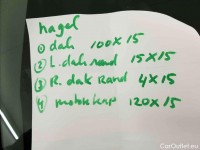 hagel
① dak 100x15
② L. dak rand 15x15
③ R. dak Rand 4x15
④ motorkap 120x15
CarOutlet.eu